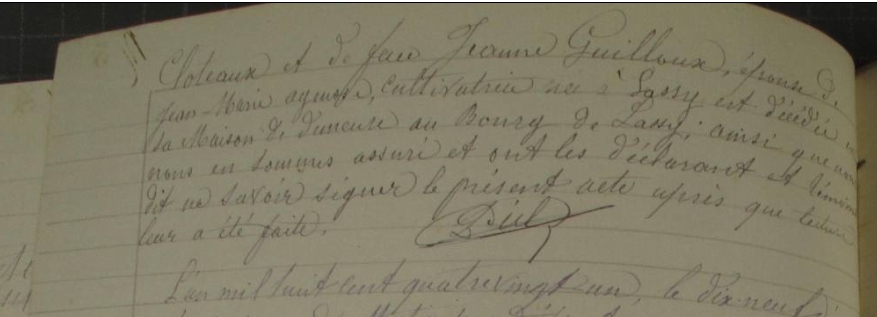 Cloteaux et de feue Jeanne Guilloux, épouse de
Jean-Marie , cultivatrice née à Lassy est décédée en
sa Maison de demeure au Bourg de Lassy; ainsi que nous
nous en sommes assuré et ont les déclarant et témoins
dit ne savoir signer le présent acte après que lecture
leur a été faite.
L'an mil huit cent quatrevingt un, le dix-neuf